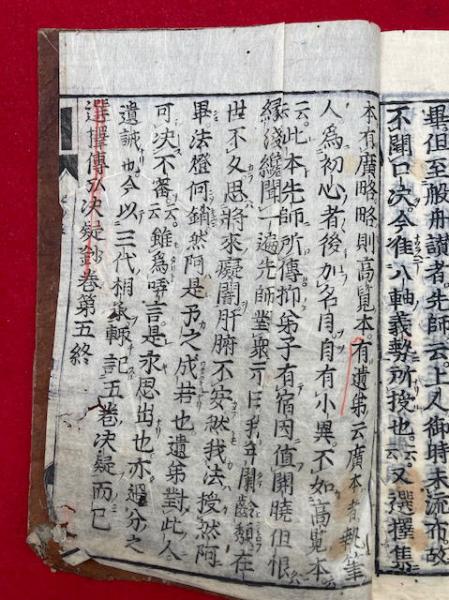 畢但至般舟讃者先師云上人御時未流布故
不聞口决今准八軸義勢所授也云云又選擇集
本有廣略略則高覧本有遺弟云廣本者執筆
人爲初心者後加名目自有小異不如高覧本
云云此本先師所傳抑弟子有宿因値開曉但恨
縁淺纔聞一遍先師坐衆示曰我年闌齒頽在
世不久思將來癡闇肝腑不安然我法授然阿
畢法燈何銷然阿是予之成若也遺弟對此人
可决不審云云雖爲唔言是永思出也亦過分之
遺誡也今以三代相承輙記五卷决疑而已
選擇傳弘决疑鈔卷第五終